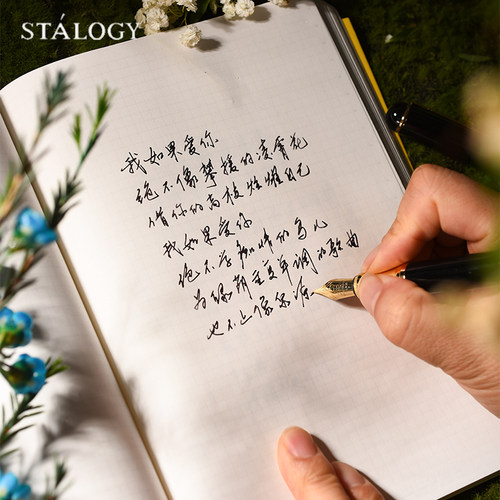 STÁLOGY
我如果爱你
绝不像攀援的凌霄花
借你的高枝炫耀自己
我如果爱你
绝不学痴情的鸟儿
为绿荫重复单调的歌曲
也不止像泉源